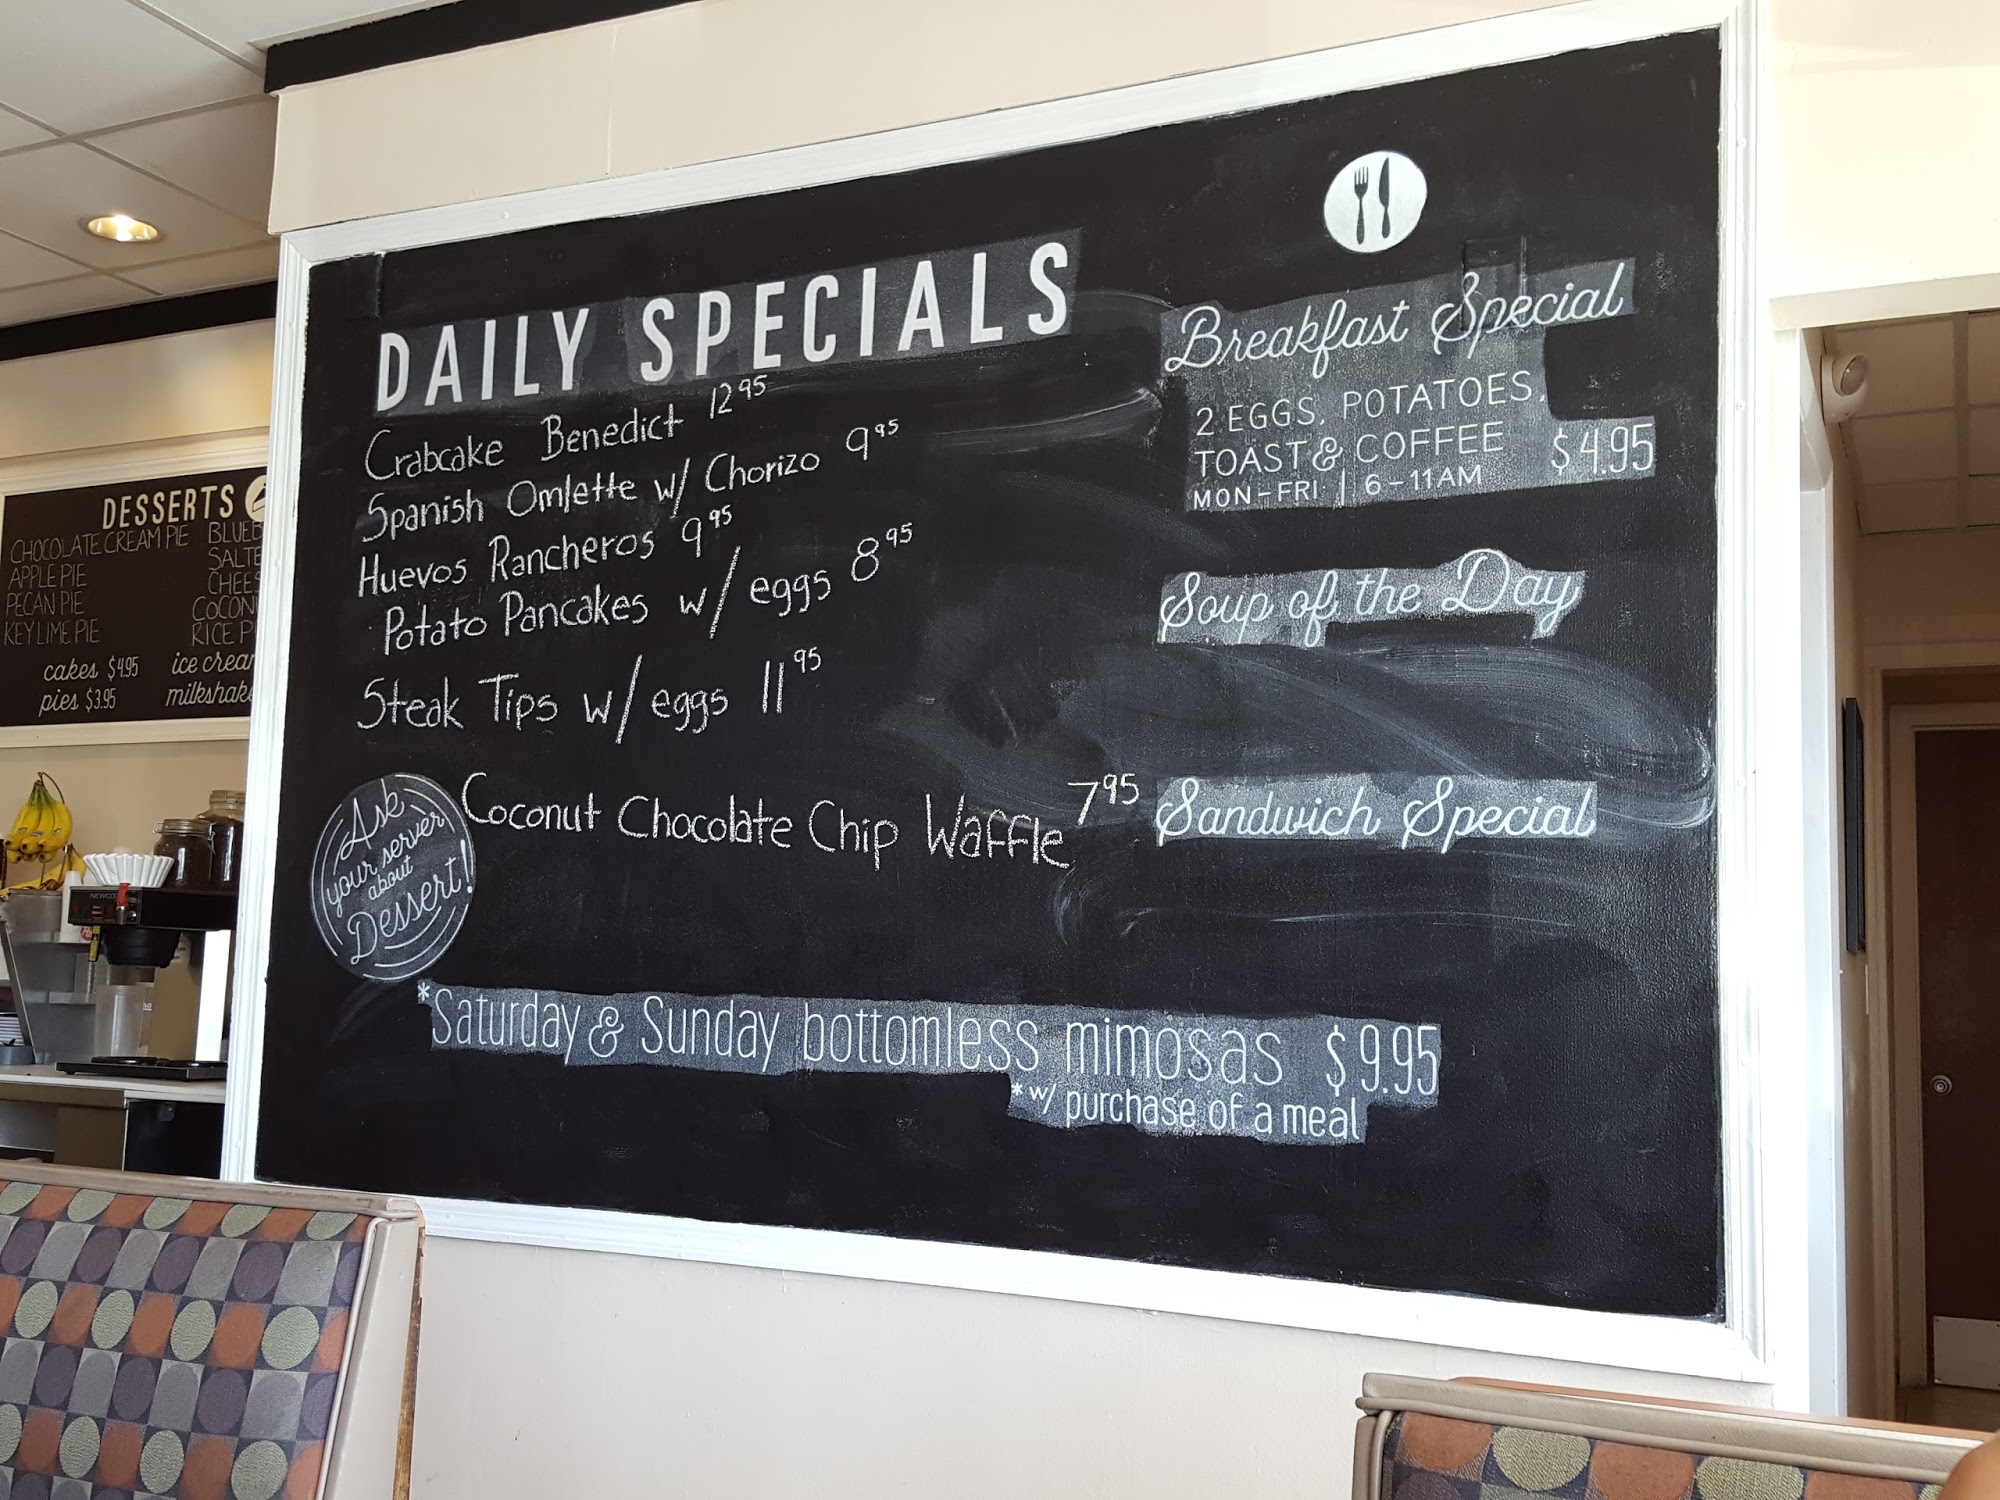 DAILY SPECIALS
Crabcake Benedict 12 95
Spanish Omlette w/ Chorizo 9 95
Huevos Rancheros 9 95
Potato Pancakes w/ eggs 8 95
Steak Tips w/ eggs 11 95
Coconut Chocolate Chip Waffle 7 95
Ask
your server
about
Dessert!
*Saturday & Sunday bottomless mimosas $9.95
*w/ purchase of a meal
Breakfast Special
2 EGGS, POTATOES,
TOAST & COFFEE $4.95
MON-FRI | 6-11AM
Soup of the Day
Sandwich Special
DESSERTS
CHOCOLATE CREAM PIE
APPLE PIE
PECAN PIE
KEY LIME PIE
cakes $4.95
pies $3.95
BLUEB
SALTE
CHEES
COCON
RICE P
ice crea
milkshake